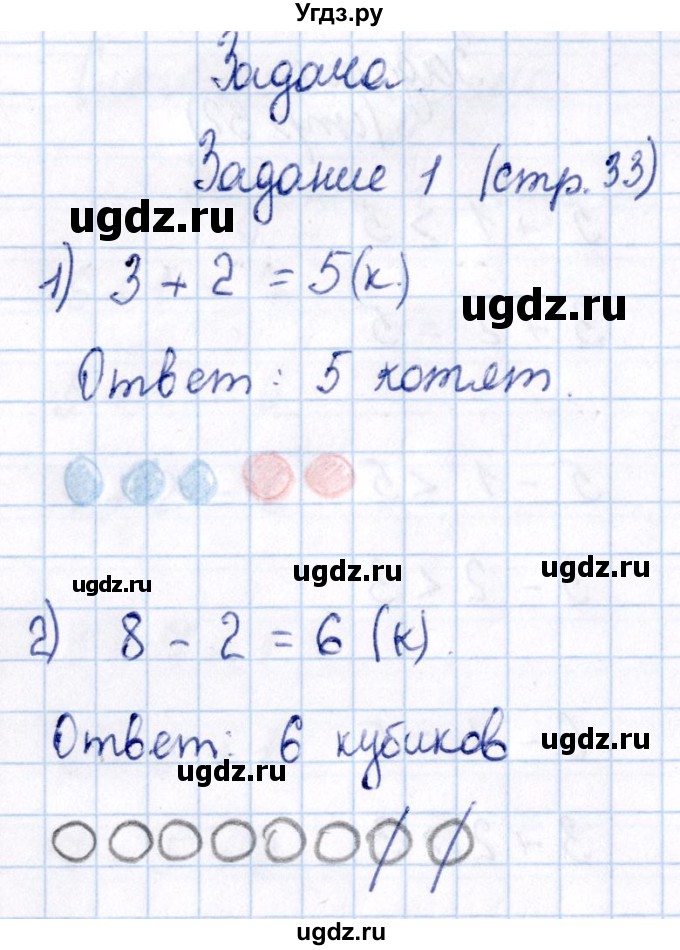 Угдз.ру
Задача.
Задание 1 (стр. 33)
ugdz.ru
1) 3 + 2 = 5 (к.)
ugdz.ru
Ответ: 5 котят.
ugdz.ru ugdz.ru ugdz.ru
2) 8 - 2 = 6 (к).
Ответ: 6 кубиков
ugdz.ru
ugdz.ru
ugdz.ru